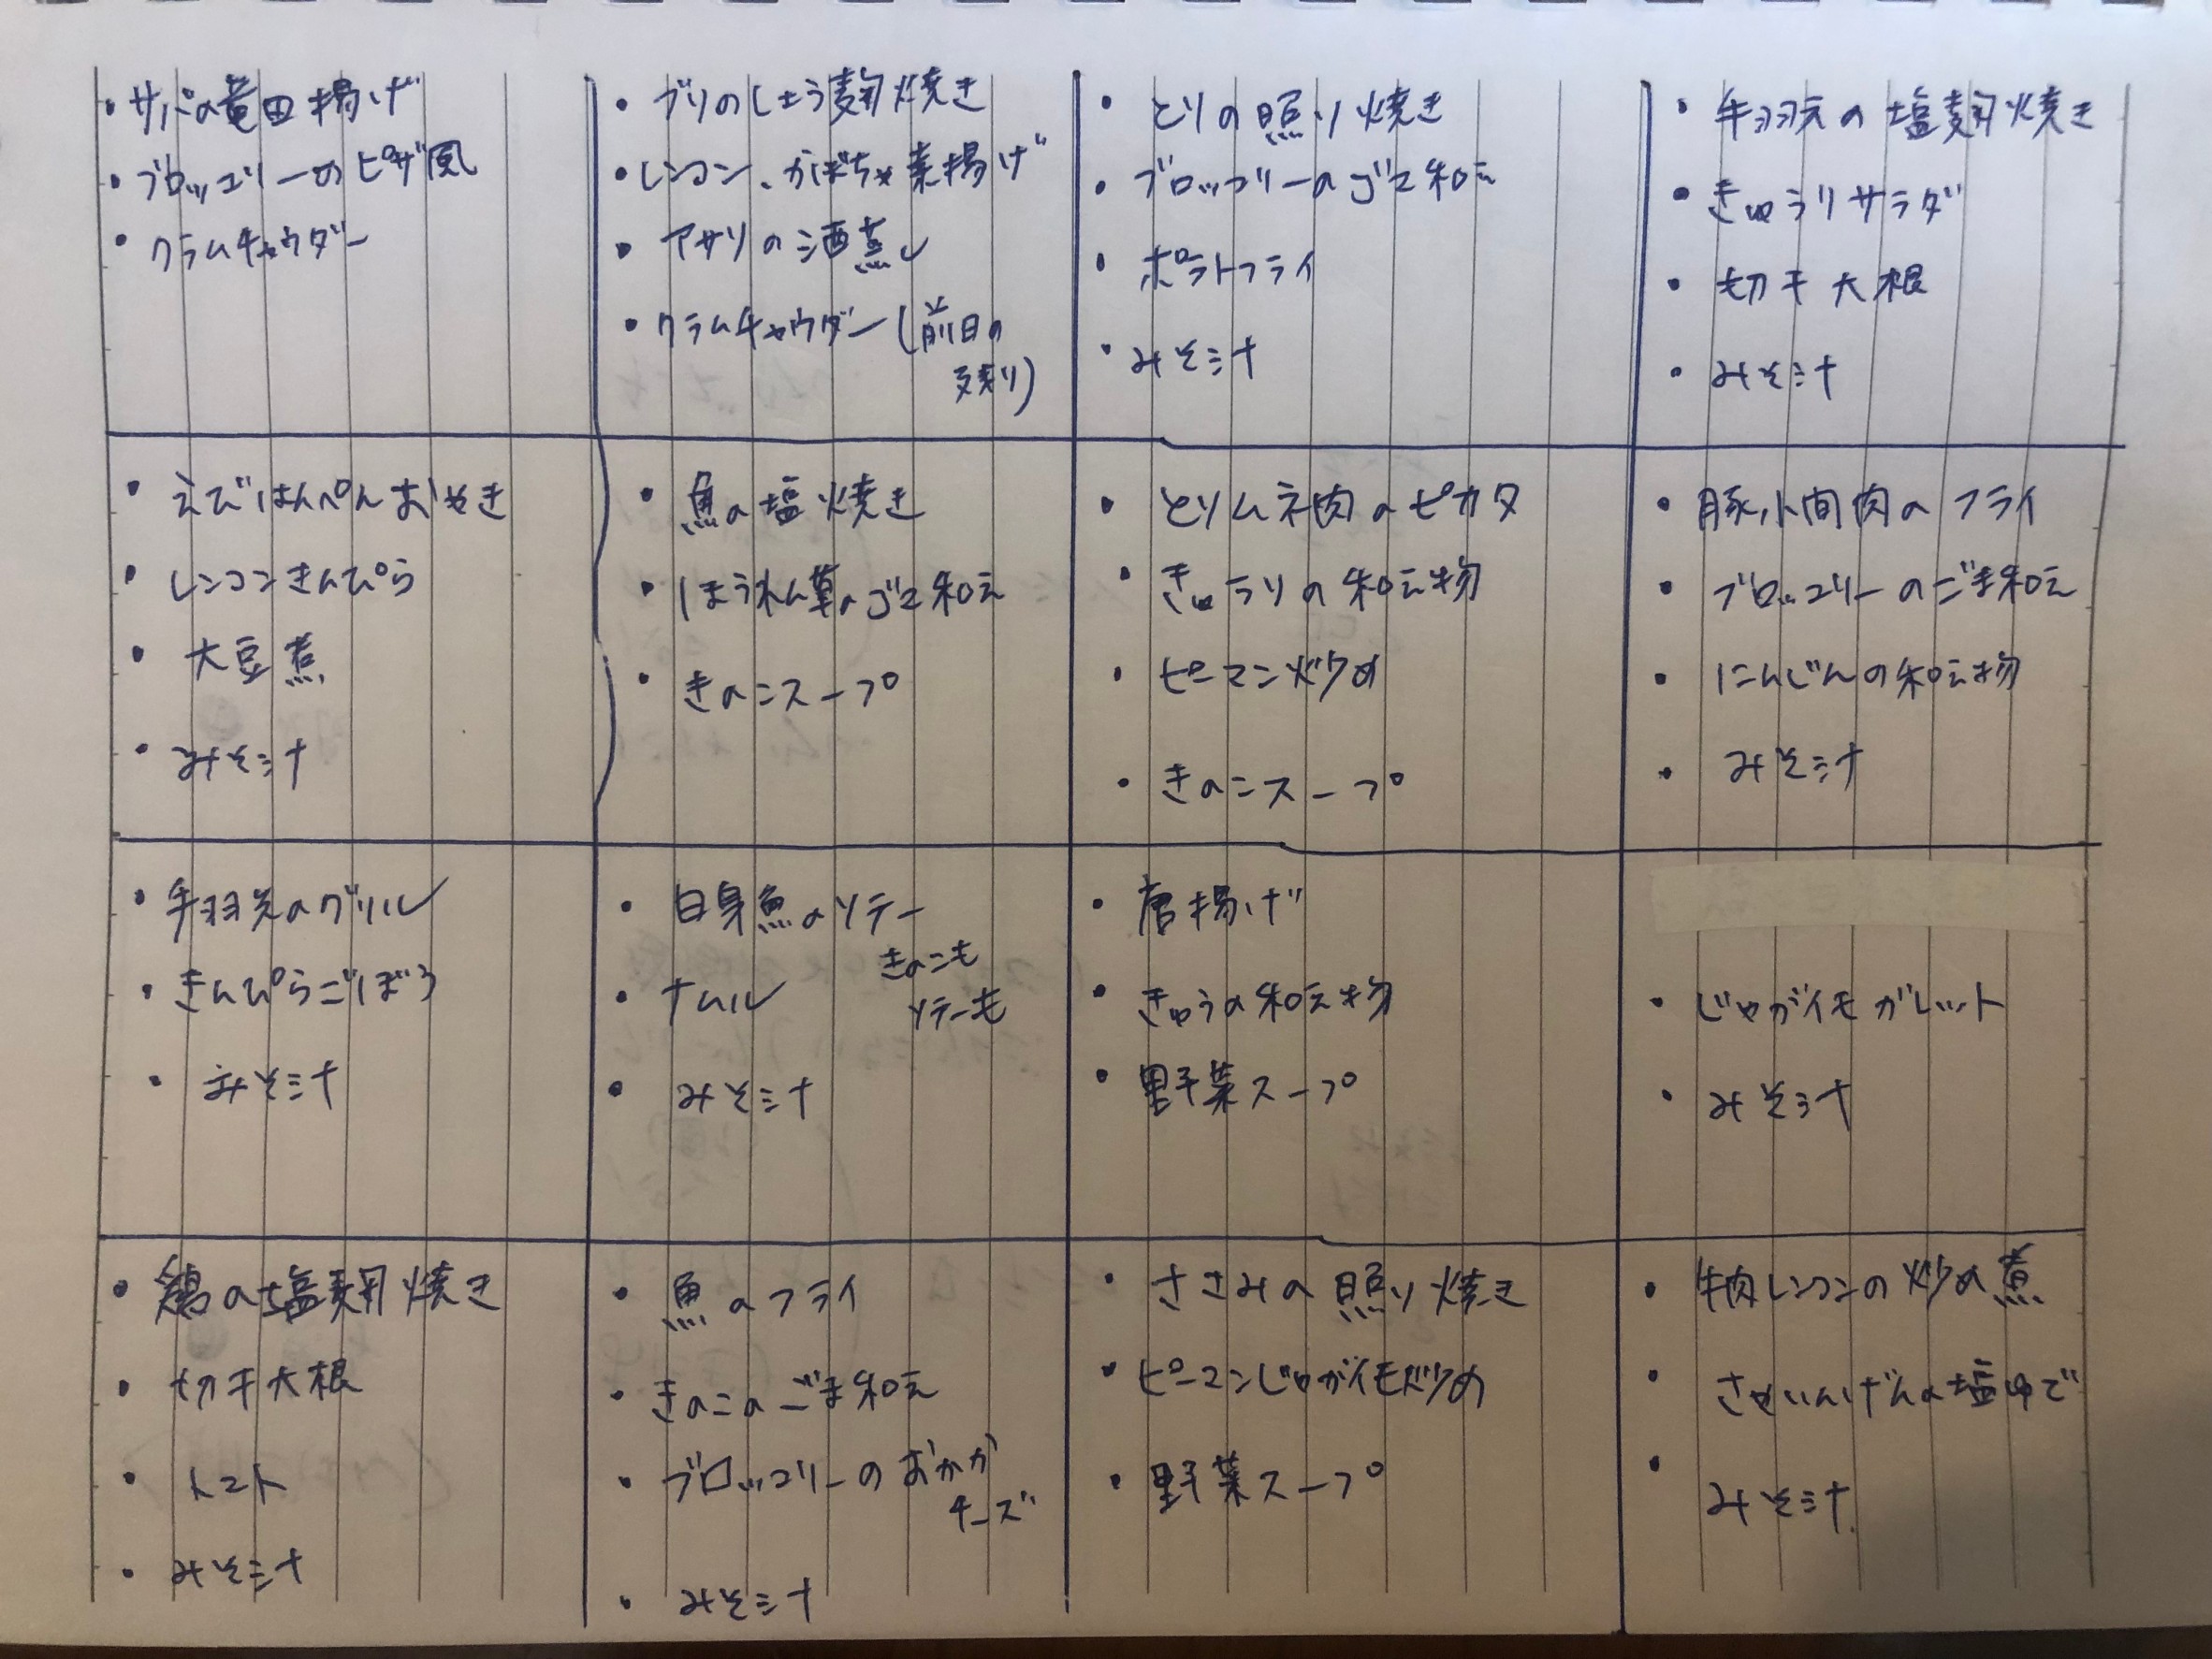 ・サバの竜田揚げ
・ブロッコリーのピザ風
・クラムチャウダー
・ブリのしょう麹焼き
・レンコン、かぼちゃ素揚げ
・アサリの酒蒸し
・クラムチャウダー(前日の
残り)
・とりの照り焼き
・ブロッコリーのゴマ和え
・ポテトフライ
・みそ汁
・手羽元の塩麹焼き
・きゅうりサラダ
・切干大根
・みそ汁
・えびはんぺんおやき
・レンコンきんぴら
・大豆煮
・みそ汁
・魚の塩焼き
・ほうれん草のゴマ和え
・きのこスープ
・とりムネ肉のピカタ
・きゅうりの和え物
・ピーマン炒め
・きのこスープ
・豚小間肉のフライ
・ブロッコリーのごま和え
・にんじんの和え物
・みそ汁
・手羽先のグリル
・きんぴらごぼう
・みそ汁
・白身魚のソテー
きのこも
ソテーも
・ナムル
・みそ汁
・唐揚げ
・きゅうの和え物
・野菜スープ
・じゃがイモガレット
・みそ汁
・鶏の塩麹焼き
・切干大根
・トマト
・みそ汁
・魚のフライ
・きのこのごま和え
・ブロッコリーのおかか
チーズ
・みそ汁
・ささみの照り焼き
・ピーマンじゃがイモ炒め
・野菜スープ
・牛肉レンコンの炒め煮
・さやいんげんの塩ゆで
・みそ汁